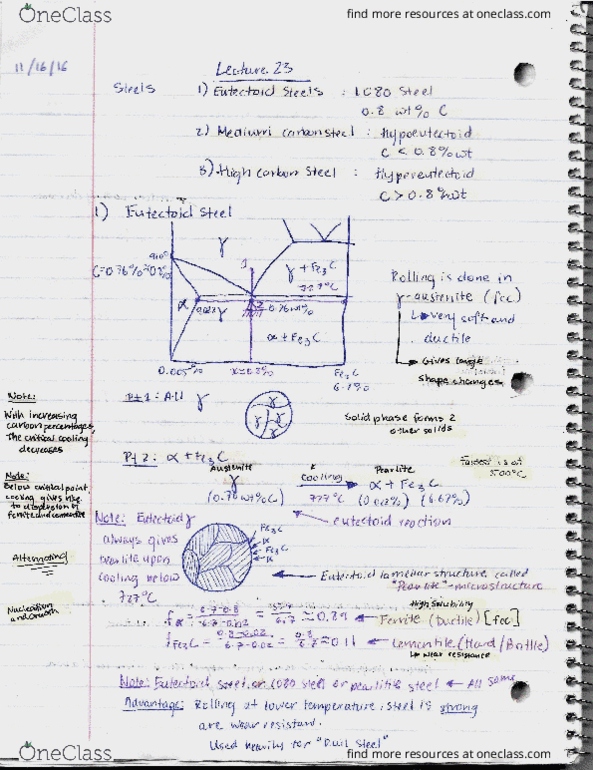 OneClass
find more resources at oneclass.com
11/16/16
Lecture 23
Steels
1) Eutectoid Steels : 1080 Steel
0.8 wt% C
2) Medium carbon steel : Hypoeutectoid
C < 0.8%wt
3) High carbon Steel : Hypereutectoid
C > 0.8%wt
1) Eutectoid Steel
γ
1
γ + Fe3C
727°C
α
α+γ
2
0.76wt%
α + Fe3C
0.005%
x=0.8%
Fe3C
6.7%
Rolling is done in
γ-austenite (fcc)
very soft and
ductile
Gives large
shape changes
Note:
With increasing
carbon percentages,
The critical cooling
decreases
Pt 1: All γ
γ γ γ γ
Solid phase forms 2
other solids
Pt 2: α + Fe3C
Fastest is at
500°C
Austenite
γ
cooling
Pearlite
α + Fe3C
(0.76 wt%C)
727°C
(0.02%) (6.67%)
eutectoid reaction
Note:
Below critical point,
cooling gives rise
to dispersion of
ferrite and cementite
Note: Eutectoid γ
always gives
pearlite upon
cooling below
727°C
Fe3C
α
Fe3C
α
Alternating
Eutectoid lamellar structure, called
"Pearlite"-microstructure
Nucleation
and growth
High Solubility
fα = 6.7-0.8 / 6.7-0.02 = / 6.7 ≈ 0.89
Ferrite (Ductile) [fcc]
fFe3C = 0.8-0.02 / 6.7-0.02 = 0.8 / 6.7 ≈ 0.11
Cementite (Hard/Brittle)
wear resistance
Note: Eutectoid steel or 1080 steel or pearlitic steel ← All same
Advantage: Rolling at lower temperature, steel is strong
are wear resistant.
Used heavily for "Rail Steel"
OneClass
find more resources at oneclass.com